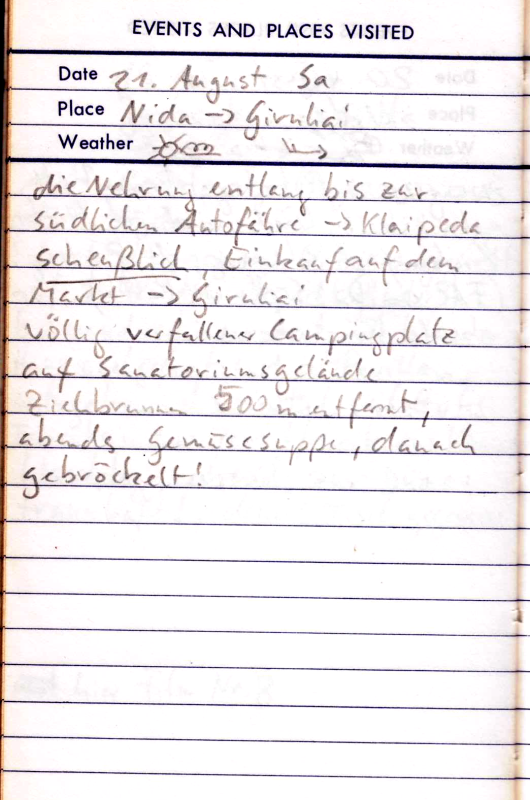 EVENTS AND PLACES VISITED
Date 21. August Sa
Place Nida -> Giruliai
Weather
die Nehrung entlang bis zur
südlichen Autofähre -> Klaipeda
scheußlich, Einkauf auf dem
Markt -> Giruliai
völlig verfallener Campingplatz
auf Sanatoriumsgelände
Ziehbrunnen 500 m entfernt,
abends Gemüsesuppe, danach
gebröckelt!